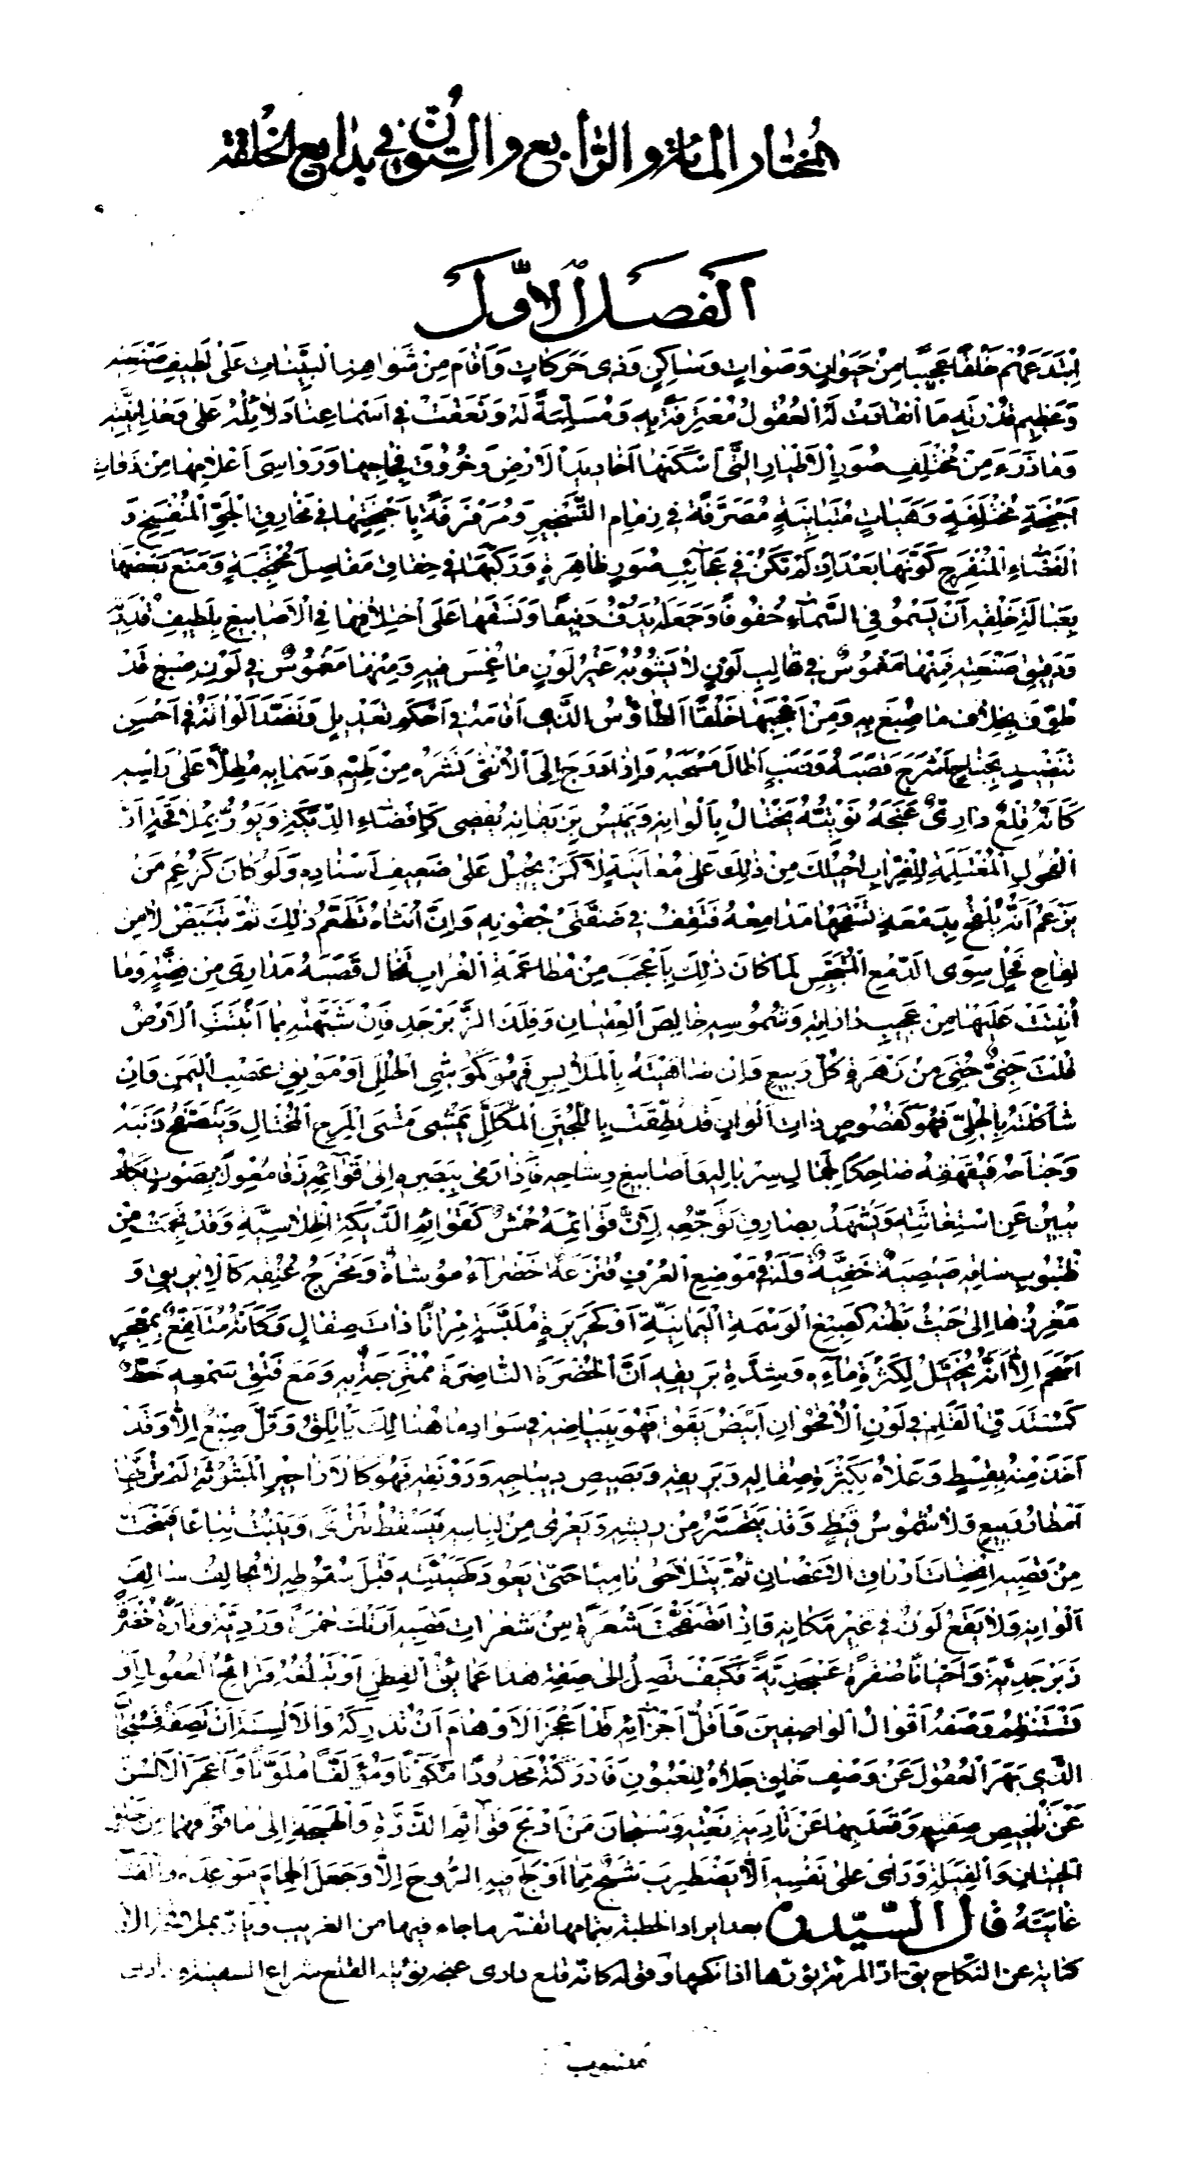 المختار المائة والرّابع والستّون في بدايع الخلقة
الفصل الأوّل
اِبْتَدَعَهُمْ خَلْقًا عَجِيبًا مِنْ حَيَوانٍ وَمَواتٍ وَساكِنٍ وَذي حَرَكاتٍ وَاَقامَ مِنْ شَواهِدِ الْبَيِّناتِ عَلى لَطيفِ صَنْعَتِهِ
وَعَظيمِ قُدْرَتِهِ ما انْقادَتْ لَهُ الْعُقُولُ مُعْتَرِفَةً بِهِ وَمُسَلِّمَةً لَهُ وَنَعَقَتْ في اَسْماعِنا دَلائِلُهُ عَلى وَحْدانِيَّتِهِ
وَما ذَرَءَ مِنْ مُخْتَلِفِ صُوَرِ الْاَطْيارِ الَّتي اَسْكَنَها اَخاديدَ الْاَرْضِ وَخُرُوقَ فِجاجِها وَرَواسِيَ اَعْلامِها مِنْ ذَواتِ
اَجْنِحَةٍ مُخْتَلِفَةٍ وَهَيَئاتٍ مُتَبايِنَةٍ مُصَرَّفَةً في زِمامِ التَّسْخيرِ وَمُرَفْرِفَةً بِاَجْنِحَتِها في مَخارِقِ الْجَوِّ الْمُنْفَسِحِ وَ
الْفَضاءِ الْمُنْفَرِجِ كَوَّنَها بَعْدَ اِذْ لَمْ تَكُنْ في عَجائِبِ صُوَرٍ ظاهِرَةٍ وَرَكَّبَها في حِقاقِ مَفاصِلَ مُحْتَجِبَةٍ وَمَنَعَ بَعْضَها
بِعَبالَةِ خَلْقِهِ اَنْ يَسْمُوَ فِي السَّماءِ خُفُوفًا وَجَعَلَهُ يَدُفُّ دَفيفًا وَنَسَقَها عَلَى اخْتِلافِها فِي الْاَصابيغِ بِلَطيفِ قُدْرَتِهِ
وَدَقيقِ صَنْعَتِهِ فَمِنْها مَغْمُوسٌ في قالَبِ لَوْنٍ لا يَشُوبُهُ غَيْرُ لَوْنِ ما غُمِسَ فيهِ وَمِنْها مَغْمُوسٌ في لَوْنِ صِبْغٍ قَدْ
طُوِّقَ بِخِلافِ ما صُبِغَ بِهِ وَمِنْ اَعْجَبِها خَلْقًا الطّاوُسُ الَّذي اَقامَهُ في اَحْكَمِ تَعْديلٍ وَنَضَّدَ اَلْوانَهُ في اَحْسَنِ
تَنْضيدٍ بِجَناحٍ اَشْرَجَ قَصَبَهُ وَذَنَبٍ اَطالَ مَسْحَبَهُ وَاِذا دَرَجَ اِلَى الْاُنْثى نَشَرَهُ مِنْ طَيِّهِ وَسَمابِهِ مُطِلًّا عَلى رَاْسِهِ
كَاَنَّهُ قِلْعُ دارِيٍّ عَنَجَهُ نُوتِيُّهُ يَخْتالُ بِاَلْوانِهِ وَيَميسُ بِزَيَفانِهِ يُفْضي كَاِفْضاءِ الدِّيَكَةِ وَيَؤُرُّ بِمُلاقَحَةٍ اَرَّ
الْفُحُولِ الْمُغْتَلِمَةِ لِلضِّرابِ اُحيلُكَ مِنْ ذلِكَ عَلى مُعايَنَةٍ لا كَمَنْ يُحيلُ عَلى ضَعيفِ اَسْنادِهِ وَلَوْ كانَ كَزَعْمِ مَنْ
يَزْعَمُ اَنَّهُ يُلْقِحُ بِدَمْعَةٍ تَسْفَحُها مَدامِعُهُ فَتَقِفُ في ضَفَّتَيْ جُفُونِهِ وَاِنَّ اُنْثاهُ تَطَعَّمُ ذلِكَ ثُمَّ تَبيضُ لا مِنْ
لِقاحِ فَحْلٍ سِوَى الدَّمْعِ الْمُنْبَجِسِ لَما كانَ ذلِكَ بِاَعْجَبَ مِنْ مُطاعَمَةِ الْغُرابِ تَخالُ قَصَبَهُ مَدارِيَ مِنْ فِضَّةٍ وَما
اُنْبِتَتْ عَلَيْها مِنْ عَجيبِ داراتِهِ وَشُمُوسِهِ خالِصَ الْعِقْيانِ وَفِلَذَ الزَّبَرْجَدِ فَاِنْ شَبَّهْتَهُ بِما اَنْبَتَتِ الْاَرْضُ
قُلْتَ جَنِيٌّ جُنِيَ مِنْ زَهْرَةِ كُلِّ رَبيعٍ وَاِنْ ضاهَيْتَهُ بِالْمَلابِسِ فَهُوَ كَمَوْشِيِّ الْحُلَلِ اَوْ مَؤْنِقِ عَصْبِ الْيَمَنِ وَاِنْ
شاكَلْتَهُ بِالْحُلِيِّ فَهُوَ كَفُصُوصٍ ذاتِ اَلْوانٍ قَدْ نُطِّقَتْ بِاللُّجَيْنِ الْمُكَلَّلِ يَمْشي مَشْيَ الْمَرِحِ الْمُخْتالِ وَيَتَصَفَّحُ ذَنَبَهُ
وَجَناحَهُ فَيُقَهْقِهُ ضاحِكًا لِجَمالِ سِرْبالِهِ وَاَصابيغِ وِشاحِهِ فَاِذا رَمى بِبَصَرِهِ اِلى قَوائِمِهِ زَقا مُعْوِلًا بِصَوْتٍ يَكادُ
يُبينُ عَنِ اسْتِغاثَتِهِ وَيَشْهَدُ بِصادِقِ تَوَجُّعِهِ لِاَنَّ قَوائِمَهُ حُمْشٌ كَقَوائِمِ الدِّيَكَةِ الْخِلاسِيَّةِ وَقَدْ نَجَمَتْ مِنْ
ظُنْبُوبِ ساقِهِ صيصِيَةٌ خَفِيَّةٌ وَلَهُ في مَوْضِعِ الْعُرْفِ قُنْزُعَةٌ خَضْراءُ مُوَشّاةٌ وَمَخْرَجُ عُنُقِهِ كَالْاِبْريقِ وَ
مَغْرِزُها اِلى حَيْثُ بَطْنُهُ كَصِبْغِ الْوَسِمَةِ الْيَمانِيَّةِ اَوْ كَحَريرَةٍ مُلْبَسَةٍ مِرْاتًا ذاتَ صِقالٍ وَكَاَنَّهُ مُتَلَفِّعٌ بِمِعْجَرٍ
اَسْحَمَ اِلّا اَنَّهُ يُخَيَّلُ لِكَثْرَةِ مائِهِ وَشِدَّةِ بَريقِهِ اَنَّ الْخُضْرَةَ النّاضِرَةَ مُمْتَزِجَةٌ بِهِ وَمَعَ فَتْقِ سَمْعِهِ خَطٌّ
كَمُسْتَدَقِّ الْقَلَمِ في لَوْنِ الْاُقْحُوانِ اَبْيَضُ يَقَقٌ فَهُوَ بِبَياضِهِ في سَوادِ ما هُنالِكَ يَأْتَلِقُ وَقَلَّ صِبْغٌ اِلّا وَقَدْ
اَخَذَ مِنْهُ بِقِسْطٍ وَعَلاهُ بِكَثْرَةِ صِقالِهِ وَبَريقِهِ وَبَصيصِ ديباجِهِ وَرَوْنَقِهِ فَهُوَ كَالْاَزاهيرِ الْمَبْثُوثَةِ لَمْ تُرَبِّها
اَمْطارُ رَبيعٍ وَلا شُمُوسُ قَيْظٍ وَقَدْ يَتَحَسَّرُ مِنْ ريشِهِ وَيَعْرى مِنْ لِباسِهِ فَيَسْقُطُ تَتْرى وَيَنْبُتُ تِباعًا فَيَنْحَتُّ
مِنْ قَصَبِهِ انْحِتاتَ اَوْراقِ الْاَغْصانِ ثُمَّ يَتَلاحَقُ نامِيًا حَتّى يَعُودَ كَهَيْئَتِهِ قَبْلَ سُقُوطِهِ لا يُخالِفُ سالِفَ
اَلْوانِهِ وَلا يَقَعُ لَوْنٌ في غَيْرِ مَكانِهِ وَاِذا تَصَفَّحْتَ شَعْرَةً مِنْ شَعَراتِ قَصَبِهِ اَرَتْكَ حُمْرَةً وَرْدِيَّةً وَتارَةً خُضْرَةً
زَبَرْجَدِيَّةً وَاَحْيانًا صُفْرَةً عَسْجَدِيَّةً فَكَيْفَ تَصِلُ اِلى صِفَةِ هذا عَمائِقُ الْفِطَنِ اَوْ تَبْلُغُهُ قَرائِحُ الْعُقُولِ اَوْ
تَسْتَنْظِمُ وَصْفَهُ اَقْوالُ الْواصِفينَ وَاَقَلُّ اَجْزائِهِ قَدْ اَعْجَزَ الْاَوْهامَ اَنْ تُدْرِكَهُ وَالْاَلْسِنَةَ اَنْ تَصِفَهُ فَسُبْحانَ
الَّذي بَهَرَ الْعُقُولَ عَنْ وَصْفِ خَلْقٍ جَلّاهُ لِلْعُيُونِ فَاَدْرَكَتْهُ مَحْدُودًا مُكَوَّنًا وَمُؤَلَّفًا مُلَوَّنًا وَاَعْجَزَ الْاَلْسُنَ
عَنْ تَلْخيصِ صِفَتِهِ وَقَعَدَ بِها عَنْ تَأْدِيَةِ نَعْتِهِ وَسُبْحانَ مَنْ اَدْمَجَ قَوائِمَ الذَّرَّةِ وَالْهَمَجَةِ اِلى ما فَوْقَهُما مِنْ خَلْقِ
الْحيتانِ وَالْفِيَلَةِ وَوَاى عَلى نَفْسِهِ اَلّا يَضْطَرِبَ شَبَحٌ مِمّا اَوْلَجَ فيهِ الرُّوحَ اِلّا وَجَعَلَ الْحِمامَ مَوْعِدَهُ وَالْفَناءَ
غايَتَهُ قال السّيّد ره بعد ايراد الخطبة بتمامها تفسير ما جاء فيها من الغريب ويؤرّ بملاقحة الأرّ
كناية عن النكاح يق ارّ المرئة يؤرّها اذا نكحها وقوله كانّه قلع داري عنجه نوتيه القلع شراع السفينة وداري
منسوب